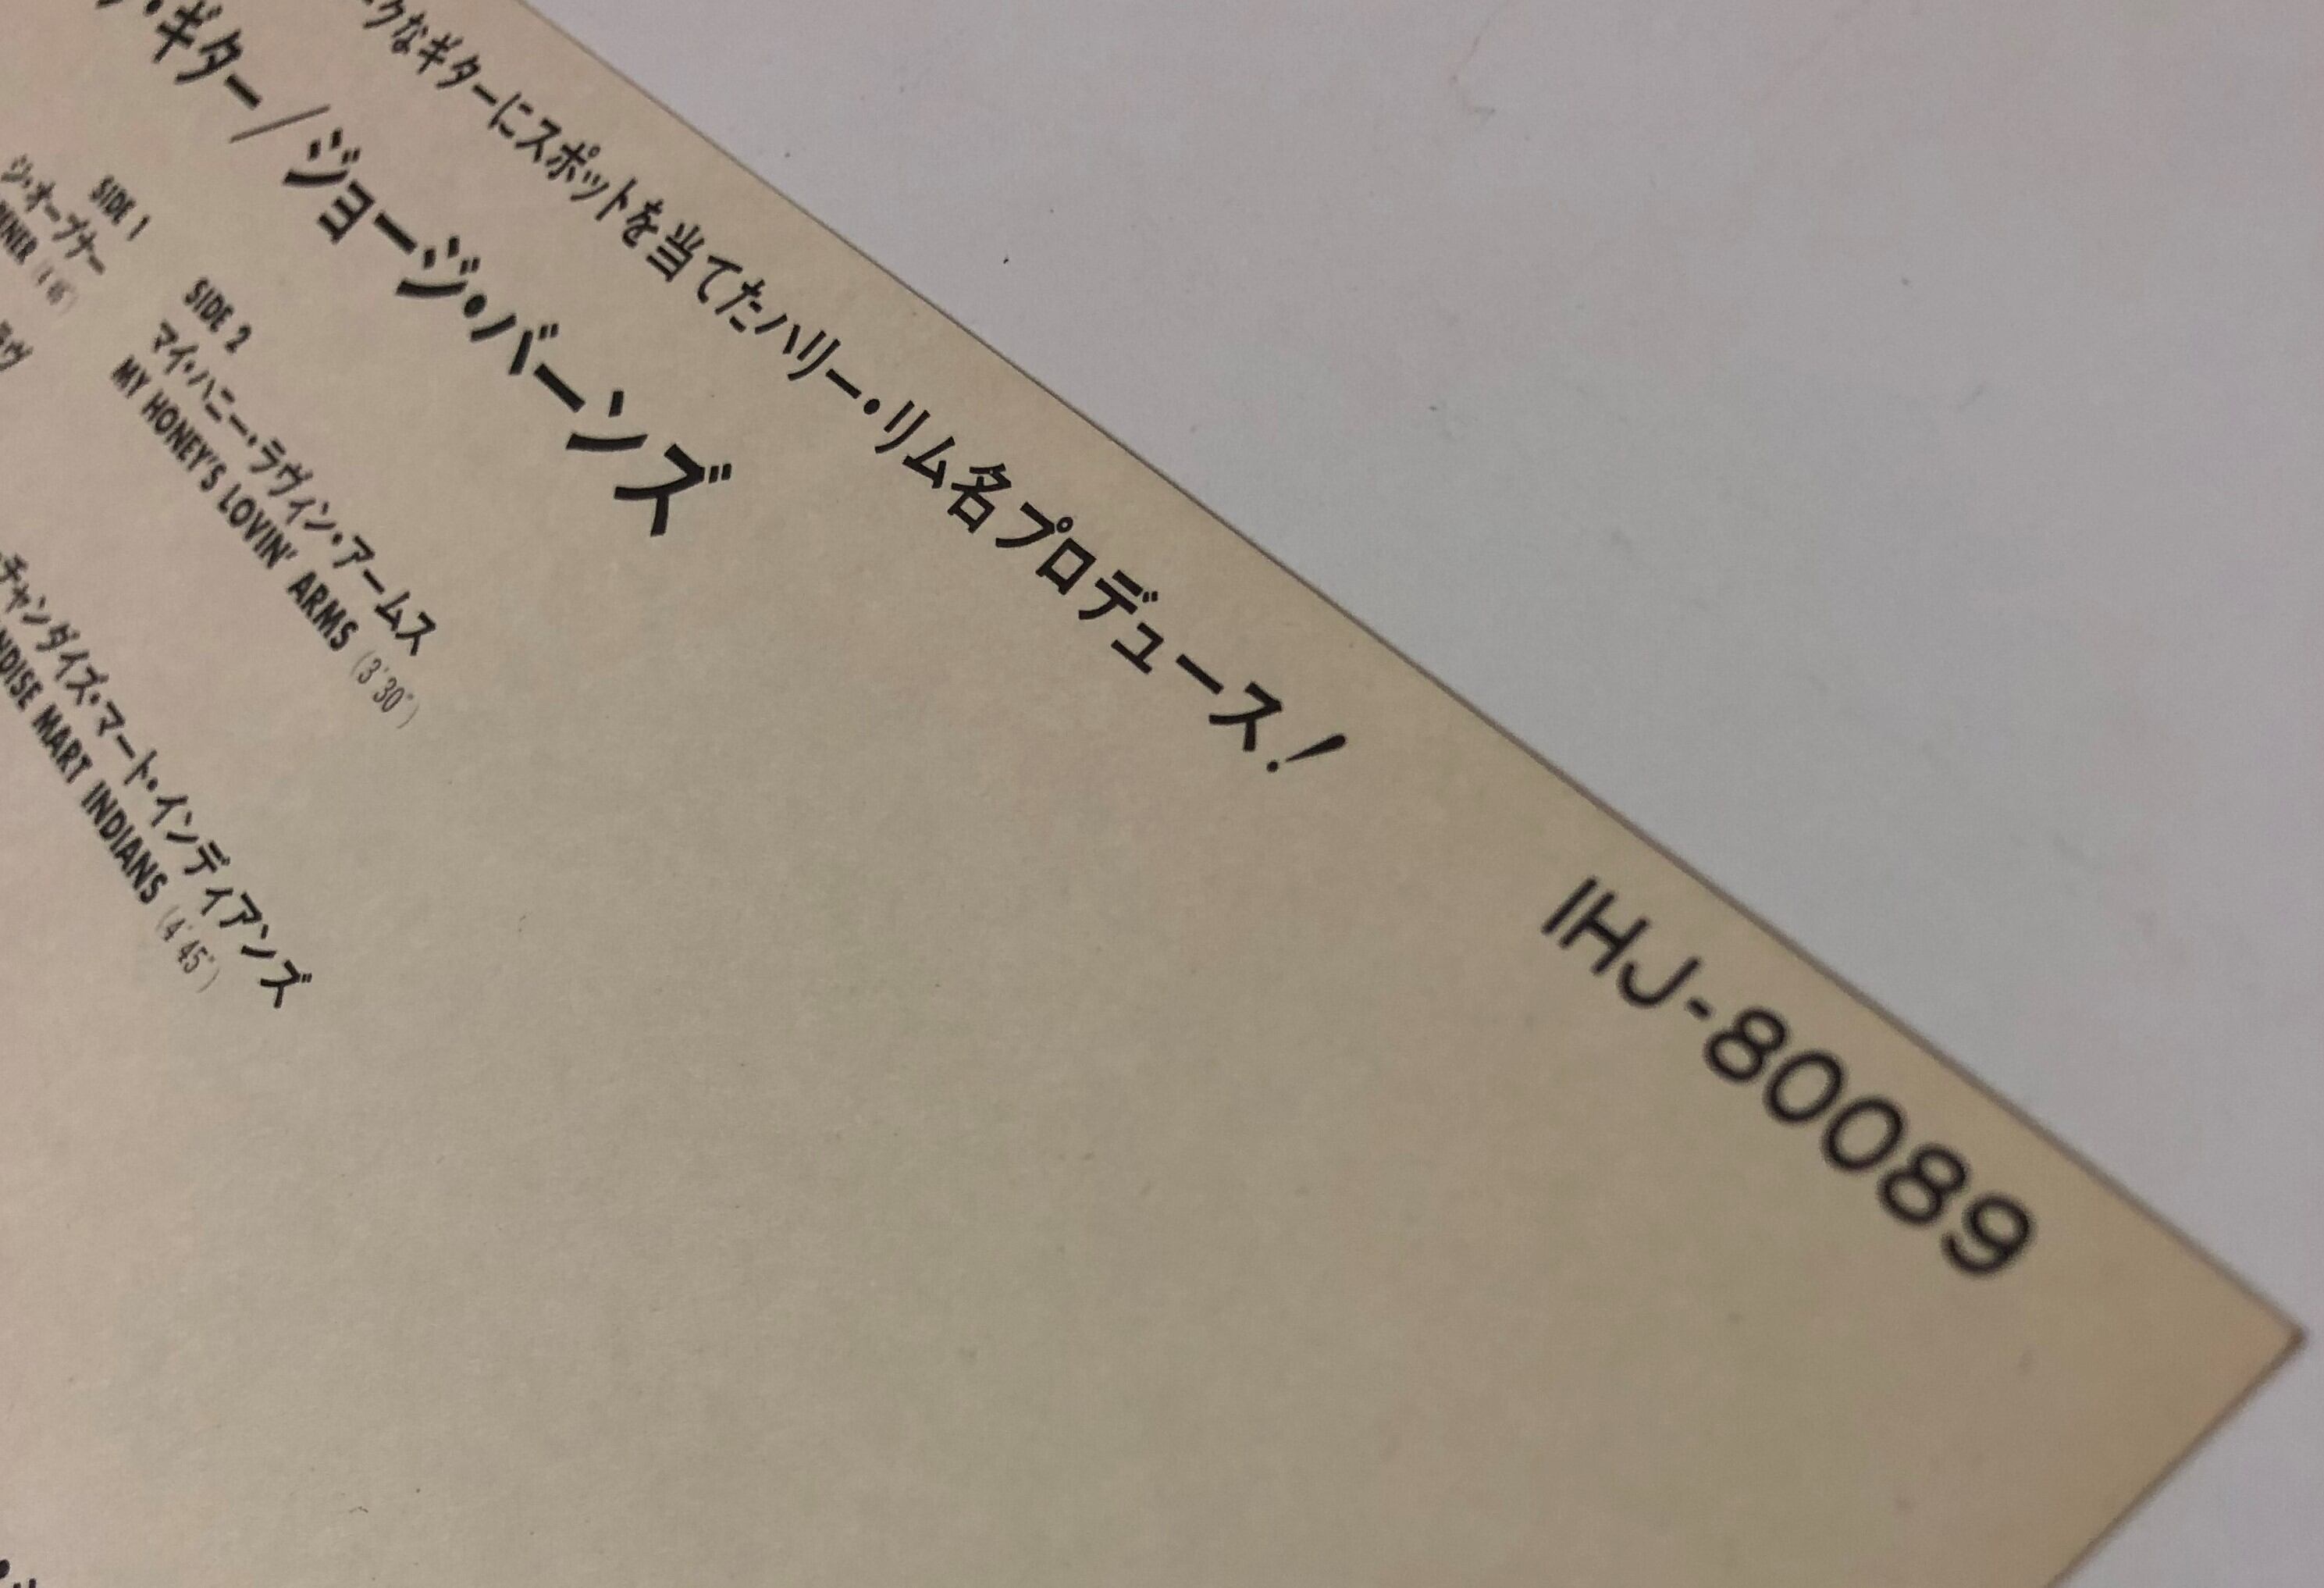 クなギターにスポットを当てたハリー・リム名プロデュース!
IHJ-80089
・ギター/ジョージ・バーンズ
SIDE 1
ジ・オープナー
SIDE 2
マイ・ハニー・ラヴィン・アームス
MY HONEY'S LOVIN' ARMS (3'30")
チャンダイズ・マート・インディアンズ
NDISE MART INDIANS (4'45")